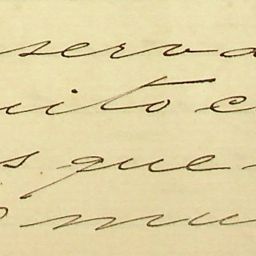 serva
uito e
s que
mu